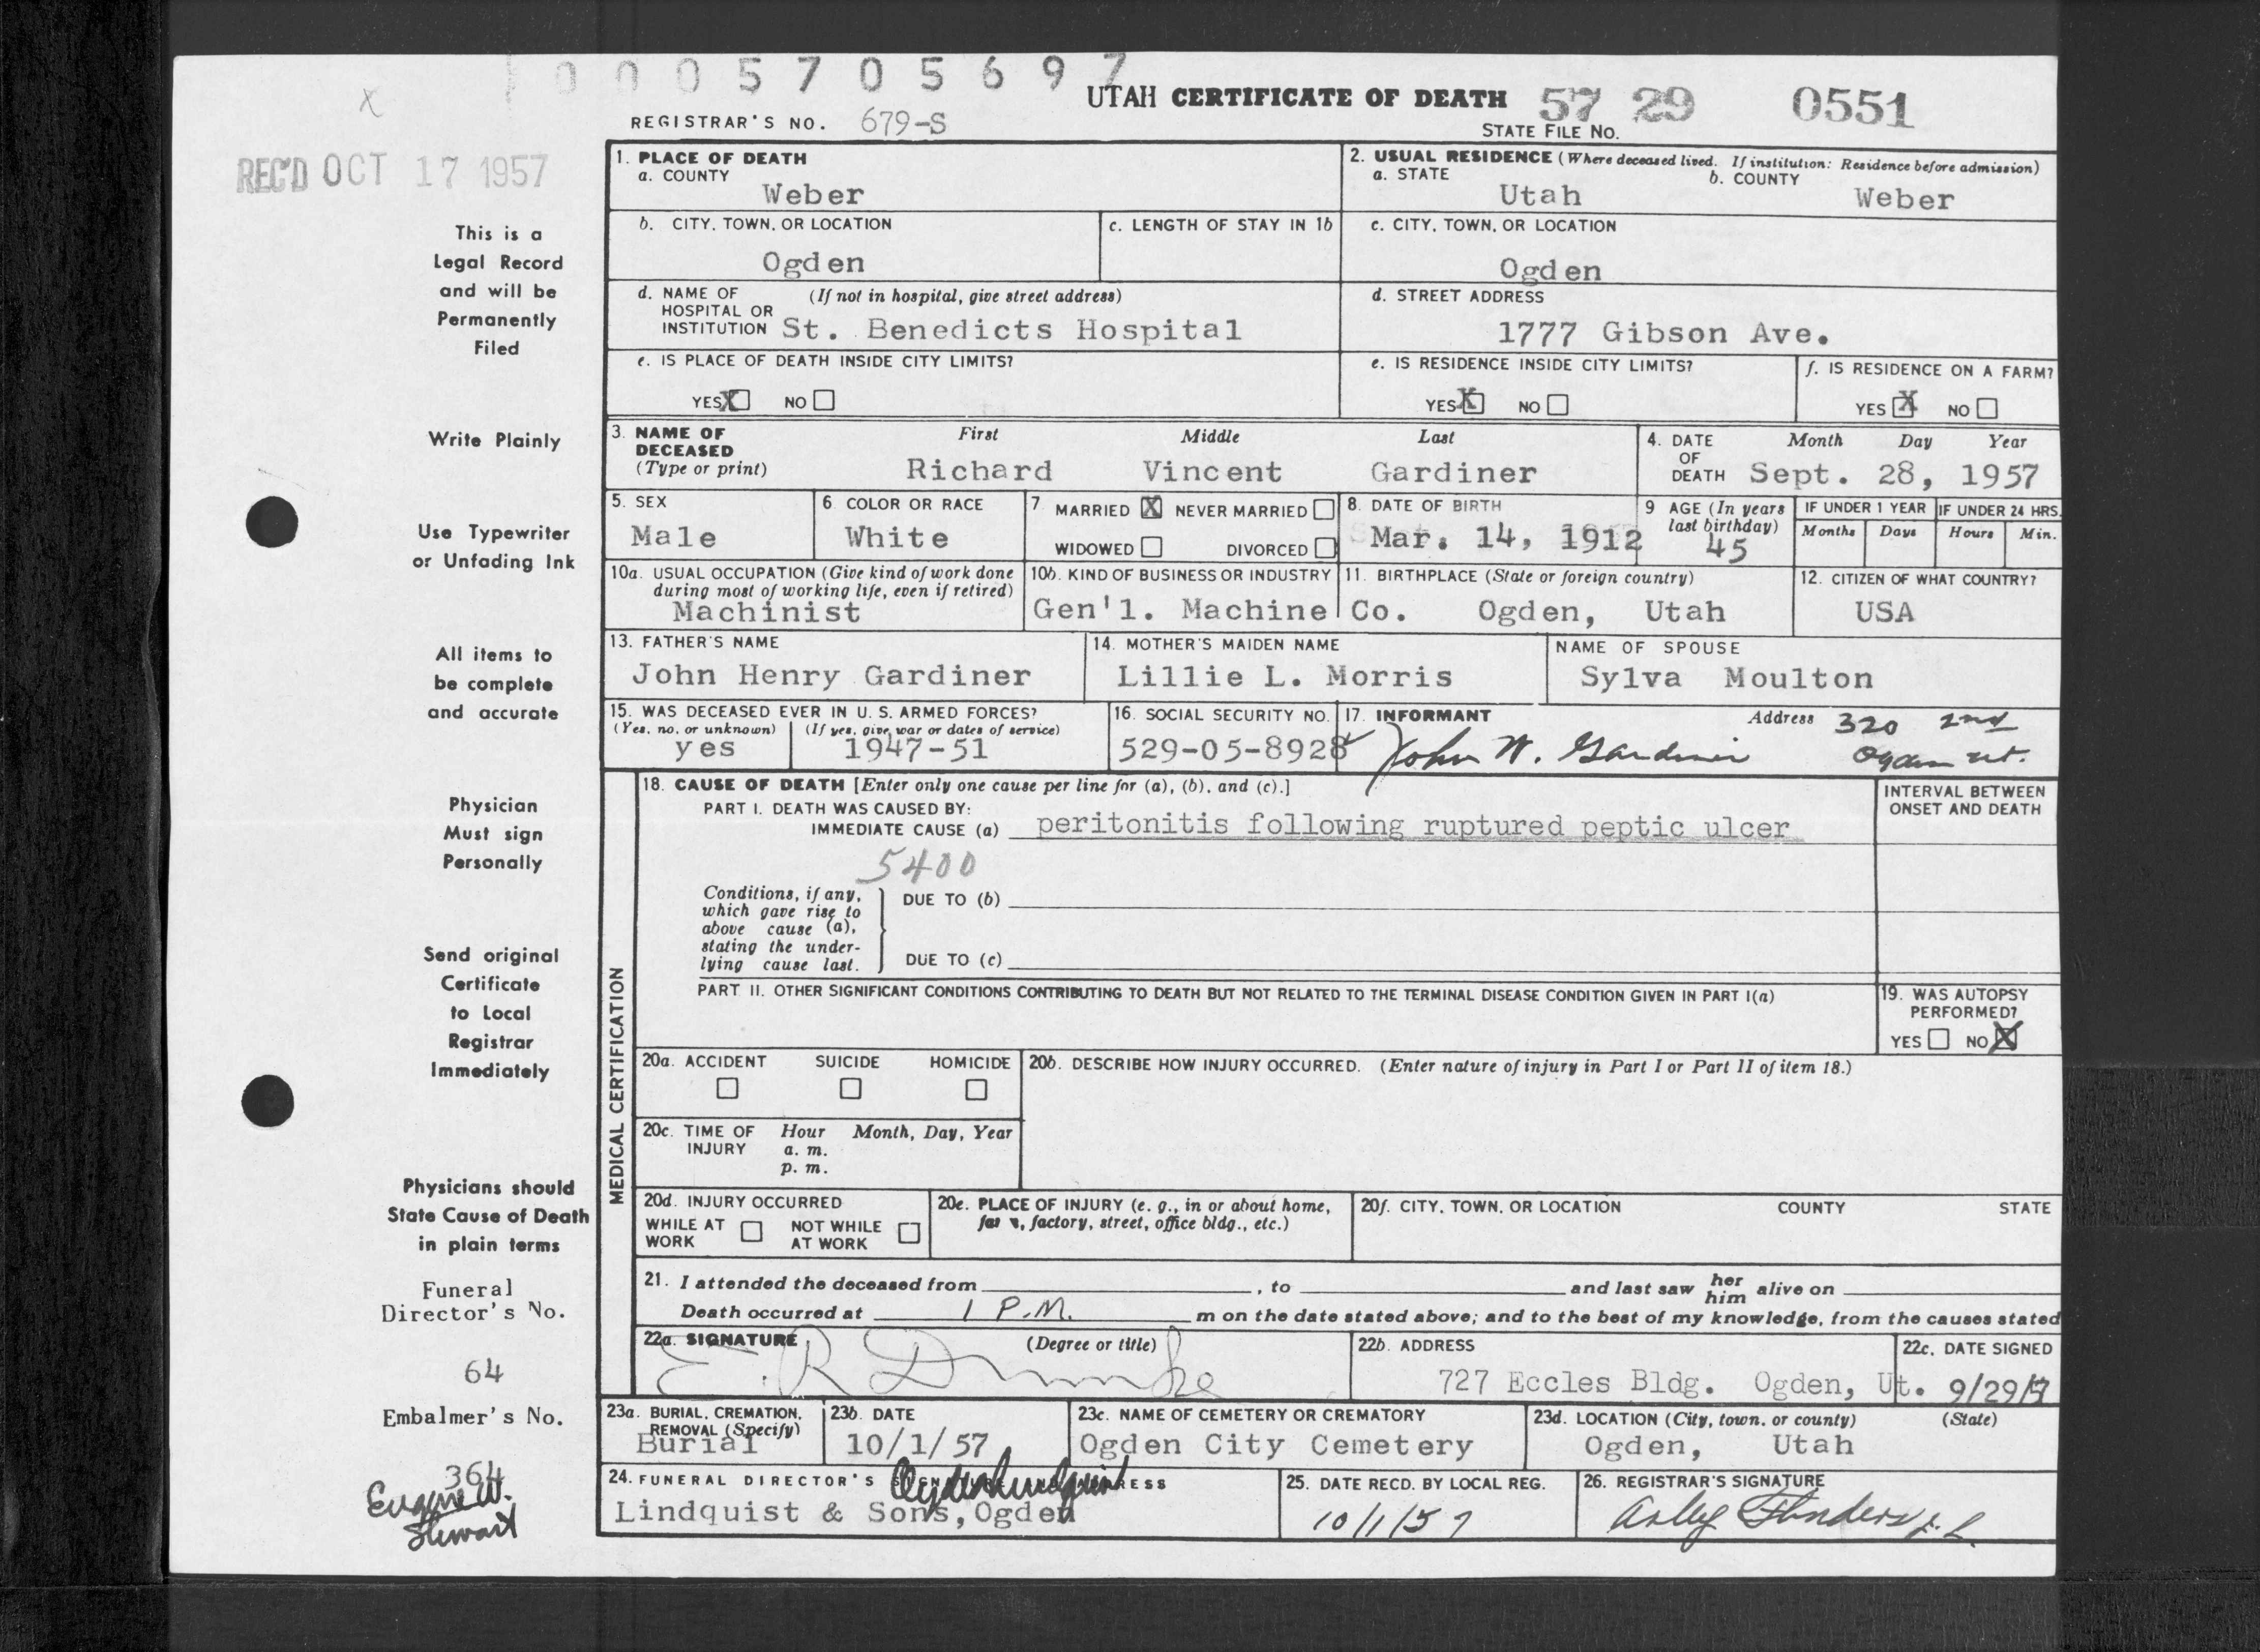 0 0 0 5 7 0 5 6 9 7
UTAH CERTIFICATE OF DEATH 57 29 0551
REGISTRAR'S NO. 679-S STATE FILE NO.
REC'D OCT 17 1957
X
This is a
Legal Record
and will be
Permanently
Filed
Write Plainly
Use Typewriter
or Unfading Ink
All items to
be complete
and accurate
Physician
Must sign
Personally
Send original
Certificate
to Local
Registrar
Immediately
Physicians should
State Cause of Death
in plain terms
Funeral
Director's No.
64
Embalmer's No.
364
Eugene W.
Stewart
1. PLACE OF DEATH
a. COUNTY
Weber
2. USUAL RESIDENCE (Where deceased lived. If institution: Residence before admission)
a. STATE b. COUNTY
Utah Weber
b. CITY, TOWN, OR LOCATION c. LENGTH OF STAY IN 1b
Ogden
c. CITY, TOWN, OR LOCATION
Ogden
d. NAME OF (If not in hospital, give street address)
HOSPITAL OR
INSTITUTION St. Benedicts Hospital
d. STREET ADDRESS
1777 Gibson Ave.
e. IS PLACE OF DEATH INSIDE CITY LIMITS?
YES X NO
e. IS RESIDENCE INSIDE CITY LIMITS?
YES X NO
f. IS RESIDENCE ON A FARM?
YES X NO
3. NAME OF First Middle Last
DECEASED
(Type or print) Richard Vincent Gardiner
4. DATE Month Day Year
OF
DEATH Sept. 28, 1957
5. SEX
Male
6 COLOR OR RACE
White
7 MARRIED X NEVER MARRIED
WIDOWED DIVORCED
8. DATE OF BIRTH
Mar. 14, 1912
9 AGE (In years
last birthday)
45
IF UNDER 1 YEAR IF UNDER 24 HRS.
Months Days Hours Min.
10a. USUAL OCCUPATION (Give kind of work done
during most of working life, even if retired)
Machinist
10b. KIND OF BUSINESS OR INDUSTRY
Gen'l. Machine Co.
11. BIRTHPLACE (State or foreign country)
Ogden, Utah
12. CITIZEN OF WHAT COUNTRY?
USA
13. FATHER'S NAME
John Henry Gardiner
14. MOTHER'S MAIDEN NAME
Lillie L. Morris
NAME OF SPOUSE
Sylva Moulton
15. WAS DECEASED EVER IN U. S. ARMED FORCES?
(Yes, no, or unknown) (If yes, give war or dates of service)
yes 1947-51
16. SOCIAL SECURITY NO.
529-05-8928
17. INFORMANT Address 320 2nd
John W. Gardiner Ogden Ut.
MEDICAL CERTIFICATION
18. CAUSE OF DEATH [Enter only one cause per line for (a), (b), and (c).]
PART I. DEATH WAS CAUSED BY:
IMMEDIATE CAUSE (a) peritonitis following ruptured peptic ulcer
INTERVAL BETWEEN
ONSET AND DEATH
5400
Conditions, if any,
which gave rise to
above cause (a),
stating the under-
lying cause last.
DUE TO (b)
DUE TO (c)
PART II. OTHER SIGNIFICANT CONDITIONS CONTRIBUTING TO DEATH BUT NOT RELATED TO THE TERMINAL DISEASE CONDITION GIVEN IN PART I(a)
19. WAS AUTOPSY
PERFORMED?
YES NO X
20a. ACCIDENT SUICIDE HOMICIDE
20b. DESCRIBE HOW INJURY OCCURRED. (Enter nature of injury in Part I or Part II of item 18.)
20c. TIME OF Hour Month, Day, Year
INJURY a. m.
p. m.
20d. INJURY OCCURRED
WHILE AT NOT WHILE
WORK AT WORK
20e. PLACE OF INJURY (e. g., in or about home,
factory, street, office bldg., etc.)
20f. CITY, TOWN, OR LOCATION COUNTY STATE
21. I attended the deceased from , to and last saw her him alive on
Death occurred at 1 P.M. m on the date stated above; and to the best of my knowledge, from the causes stated
22a. SIGNATURE (Degree or title)
E. R. Dumke
22b. ADDRESS
727 Eccles Bldg. Ogden, Ut.
22c. DATE SIGNED
9/29/57
23a. BURIAL, CREMATION,
REMOVAL (Specify)
Burial
23b. DATE
10/1/57
23c. NAME OF CEMETERY OR CREMATORY
Ogden City Cemetery
23d. LOCATION (City, town, or county) (State)
Ogden, Utah
24. FUNERAL DIRECTOR'S
Lindquist & Sons, Ogden
25. DATE RECD. BY LOCAL REG.
10/1/57
26. REGISTRAR'S SIGNATURE